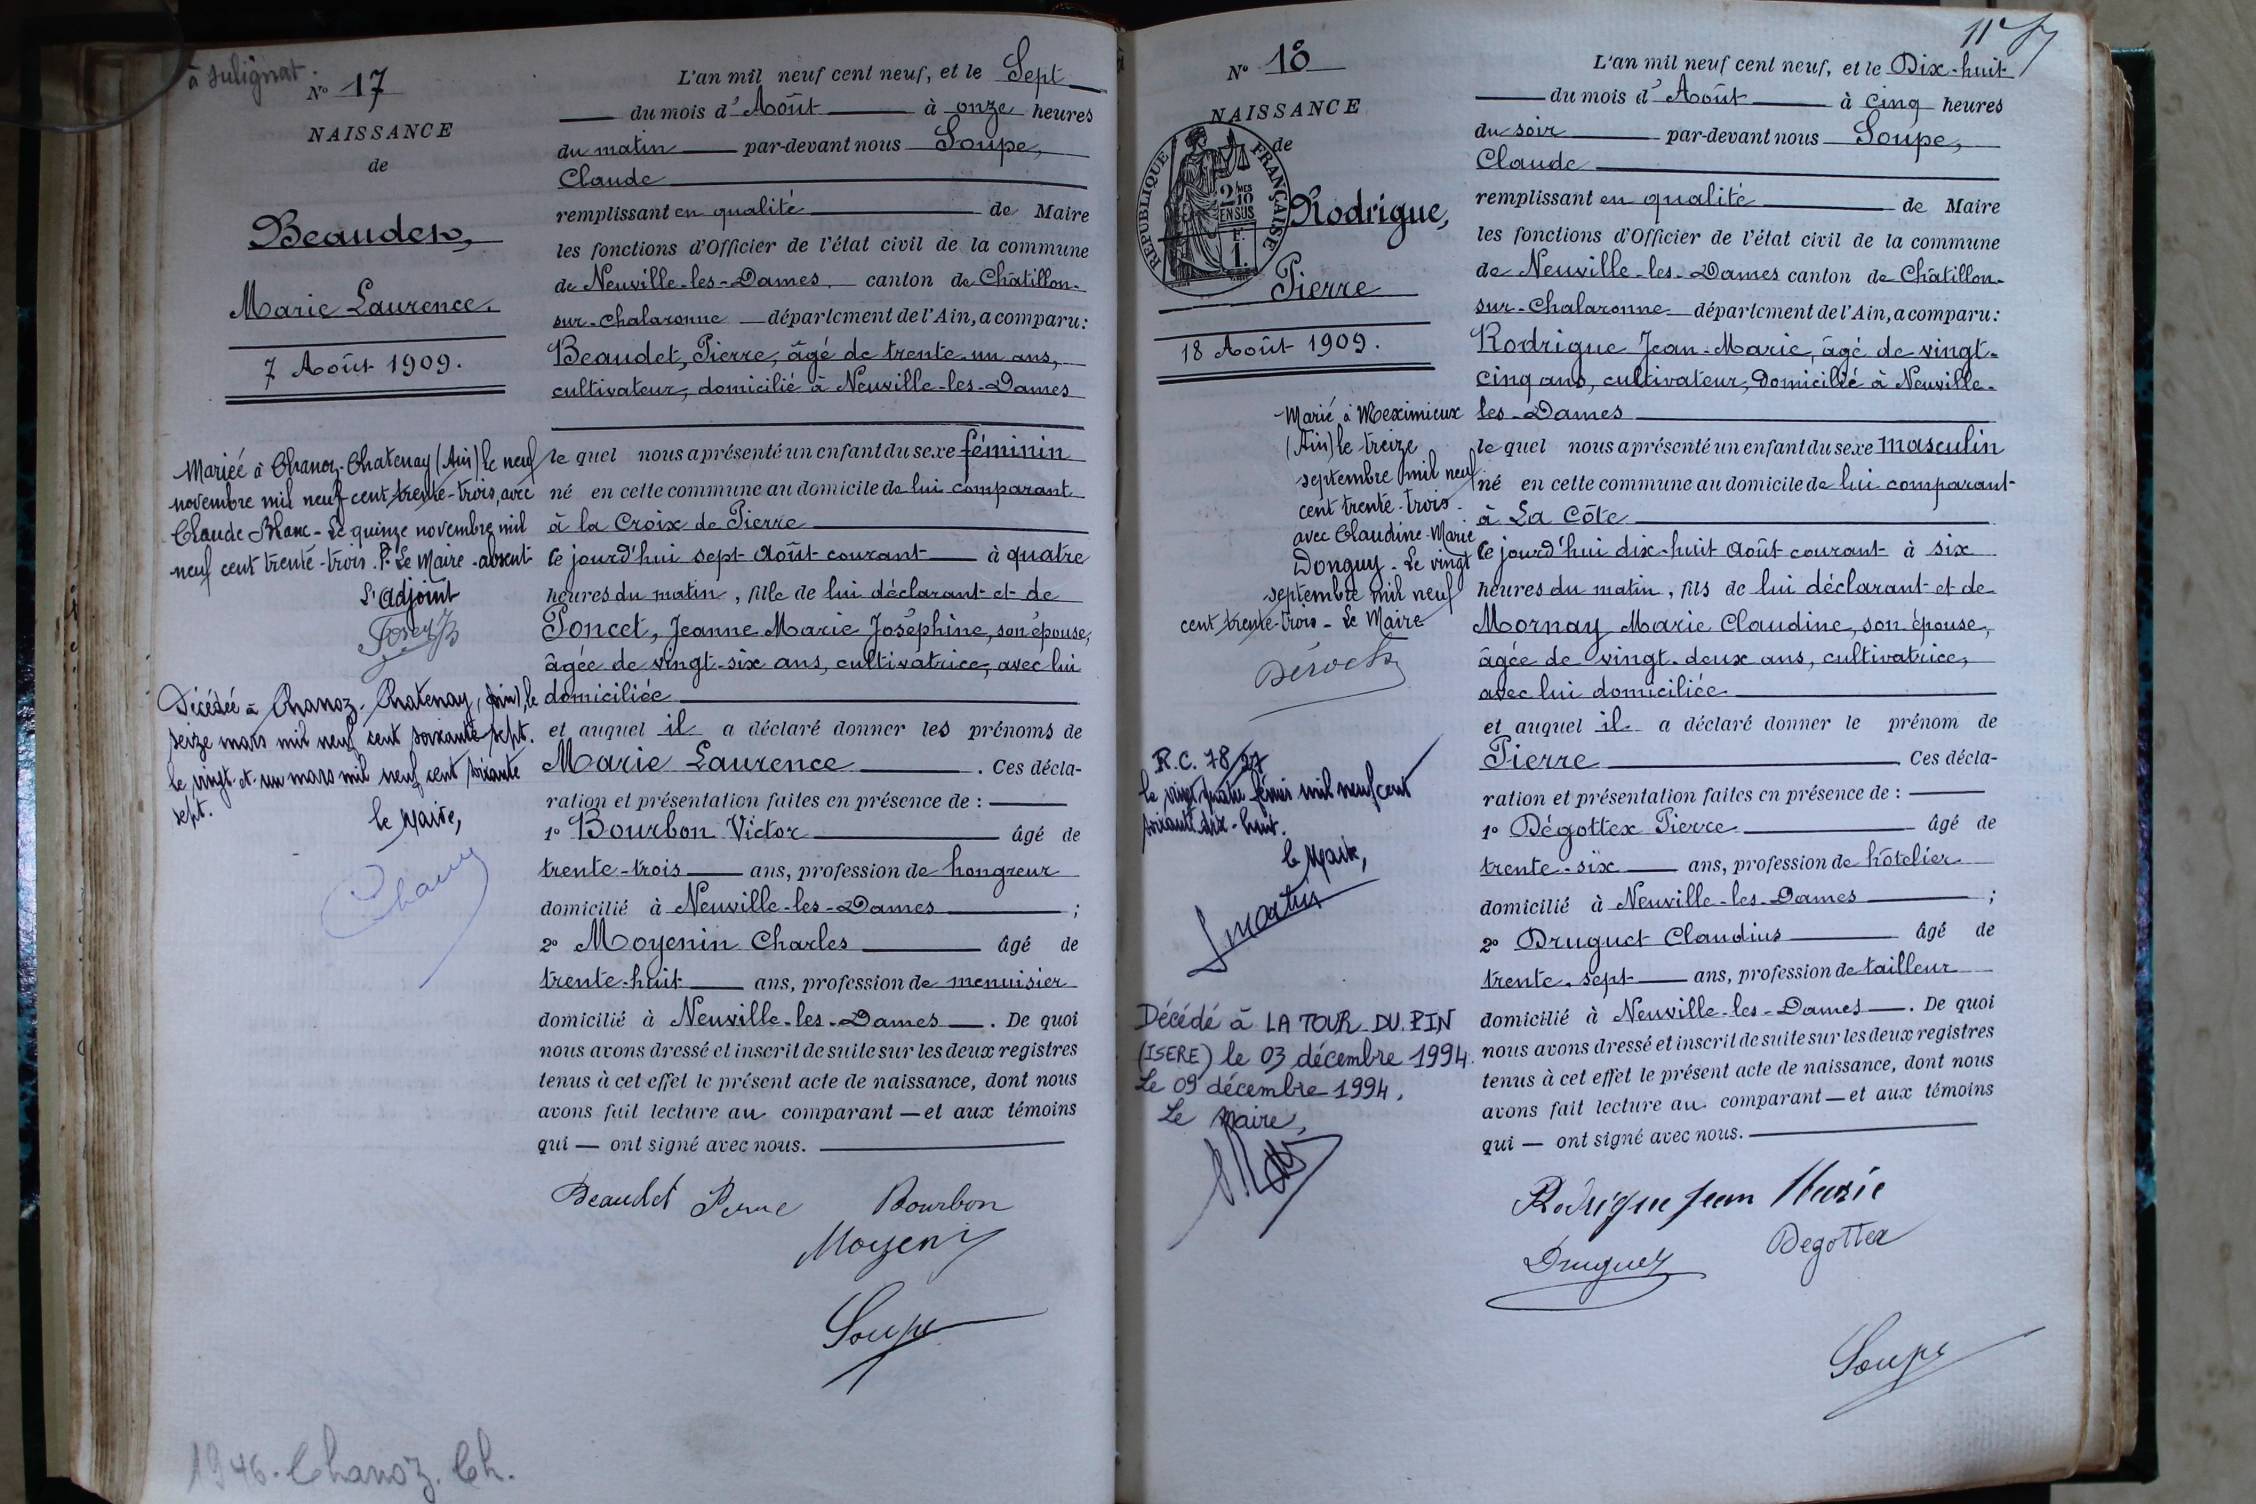 à Sulignat.
N° 17
NAISSANCE
de
Beaudet,
Marie Laurence.
7 Août 1909.
Mariée à Chanoz-Chatenay (Ain) le neuf
novembre mil neuf cent trente-trois, avec
Claude Blanc - Le quinze novembre mil
neuf cent trente-trois. P. Le Maire absent
L'adjoint
Décédée à Chanoz-Chatenay, (Ain), le
seize mars mil neuf cent soixante sept.
le vingt-et-un mars mil neuf cent soixante
sept.
le Maire,
1946. Chanoz. Ch.
L'an mil neuf cent neuf, et le Sept
du mois d'Août à onze heures
du matin par-devant nous Soupe,
Claude
remplissant en qualité de Maire
les fonctions d'Officier de l'état civil de la commune
de Neuville-les-Dames, canton de Châtillon-
sur-Chalaronne département de l'Ain, a comparu:
Beaudet, Pierre, âgé de trente-un ans,
cultivateur, domicilié à Neuville-les-Dames
le quel nous a présenté un enfant du sexe féminin
né en cette commune au domicile de lui comparant
à la Croix de Pierre
ce jourd'hui sept Août courant à quatre
heures du matin, fille de lui déclarant et de
Poncet, Jeanne Marie Joséphine, son épouse,
âgée de vingt-six ans, cultivatrice, avec lui
domiciliée
et auquel il a déclaré donner les prénoms de
Marie Laurence. Ces décla-
ration et présentation faites en présence de :
1° Bourbon Victor âgé de
trente-trois ans, profession de hongreur
domicilié à Neuville-les-Dames ;
2° Moyenin Charles âgé de
trente-huit ans, profession de menuisier
domicilié à Neuville-les-Dames. De quoi
nous avons dressé et inscrit de suite sur les deux registres
tenus à cet effet le présent acte de naissance, dont nous
avons fait lecture au comparant — et aux témoins
qui — ont signé avec nous.
Beaudet Pierre Bourbon
Moyenin
Soupe
11
N° 18
NAISSANCE
de
RÉPUBLIQUE FRANÇAISE
2/10 MES
EN SUS
F.
1.
Rodrigue,
Pierre
18 Août 1909.
Marié à Meximieux
(Ain) le treize
septembre mil neuf
cent trente-trois
avec Claudine-Marie
Donguy - Le vingt
septembre mil neuf
cent trente-trois - Le Maire
R.C. 78/27
le vingt quatre février mil neuf cent
soixante dix-huit.
le Maire,
Décédé à LA TOUR DU PIN
(ISERE) le 03 décembre 1994.
Le 09 décembre 1994,
Le Maire,
L'an mil neuf cent neuf, et le Dix-huit
du mois d'Août à cinq heures
du soir par-devant nous Soupe,
Claude
remplissant en qualité de Maire
les fonctions d'Officier de l'état civil de la commune
de Neuville-les-Dames canton de Châtillon-
sur-Chalaronne département de l'Ain, a comparu:
Rodrigue Jean-Marie, âgé de vingt-
cinq ans, cultivateur, Domicilié à Neuville-
les-Dames
le quel nous a présenté un enfant du sexe masculin
né en cette commune au domicile de lui comparant
à La Côte
ce jourd'hui dix-huit Août courant à six
heures du matin, fils de lui déclarant et de
Mornay Marie Claudine, son épouse,
âgée de vingt-deux ans, cultivatrice,
avec lui domiciliée
et auquel il a déclaré donner le prénom de
Pierre. Ces décla-
ration et présentation faites en présence de :
1° Dégottex Pierre âgé de
trente-six ans, profession de hôtelier
domicilié à Neuville-les-Dames ;
2° Druguet Claudius âgé de
trente-sept ans, profession de tailleur
domicilié à Neuville-les-Dames. De quoi
nous avons dressé et inscrit de suite sur les deux registres
tenus à cet effet le présent acte de naissance, dont nous
avons fait lecture au comparant — et aux témoins
qui — ont signé avec nous.
Rodrigue Jean Marie
Druguet Degottex
Soupe